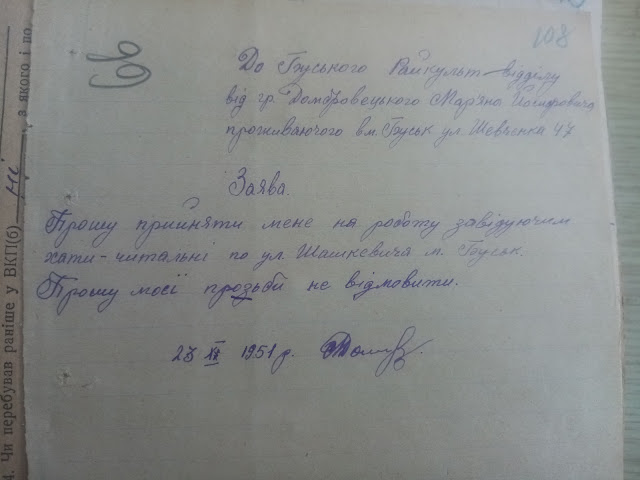 108
До Буського Райкульт-відділу
від гр. Домбровецького Мар'яна Йосифовича
проживаючого в м. Буськ ул. Шевченка 47
Заява.
Прошу прийняти мене на роботу завідуючим
хати-читальні по ул. Шашкевича м. Буськ.
Прошу моєї прозьби не відмовити.
23 XI 1951 р.
4. Чи перебував раніше у ВКП(б) ні з якого і по